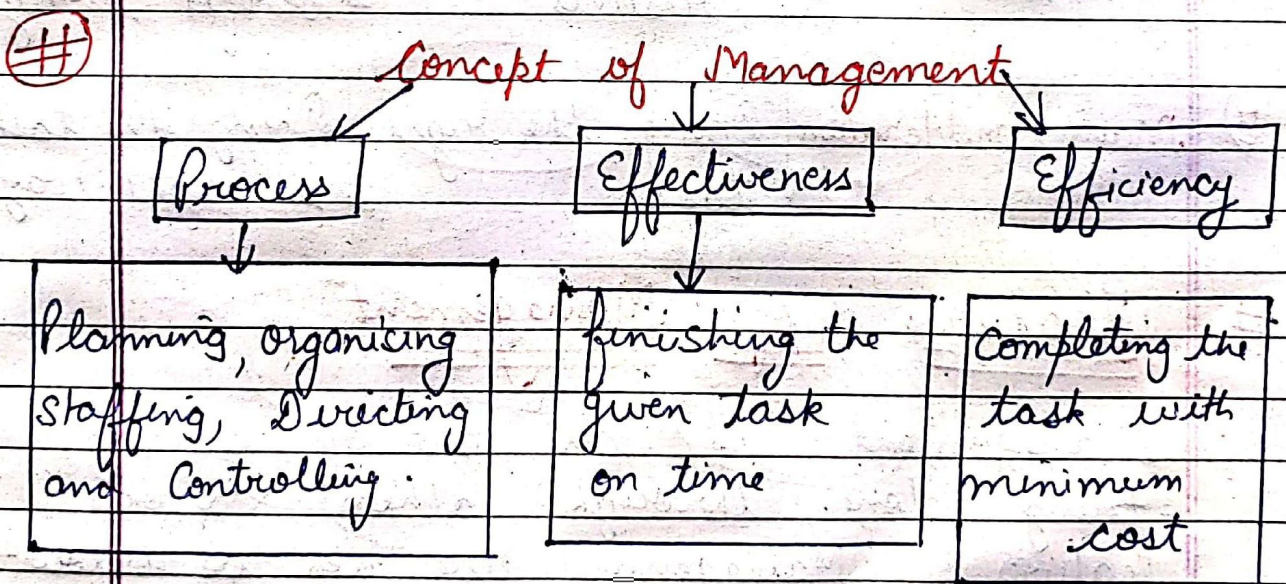 #
Concept of Management
Process
Effectiveness
Efficiency
Planning, organising
staffing, Directing
and Controlling.
finishing the
given task
on time
Completing the
task with
minimum
cost